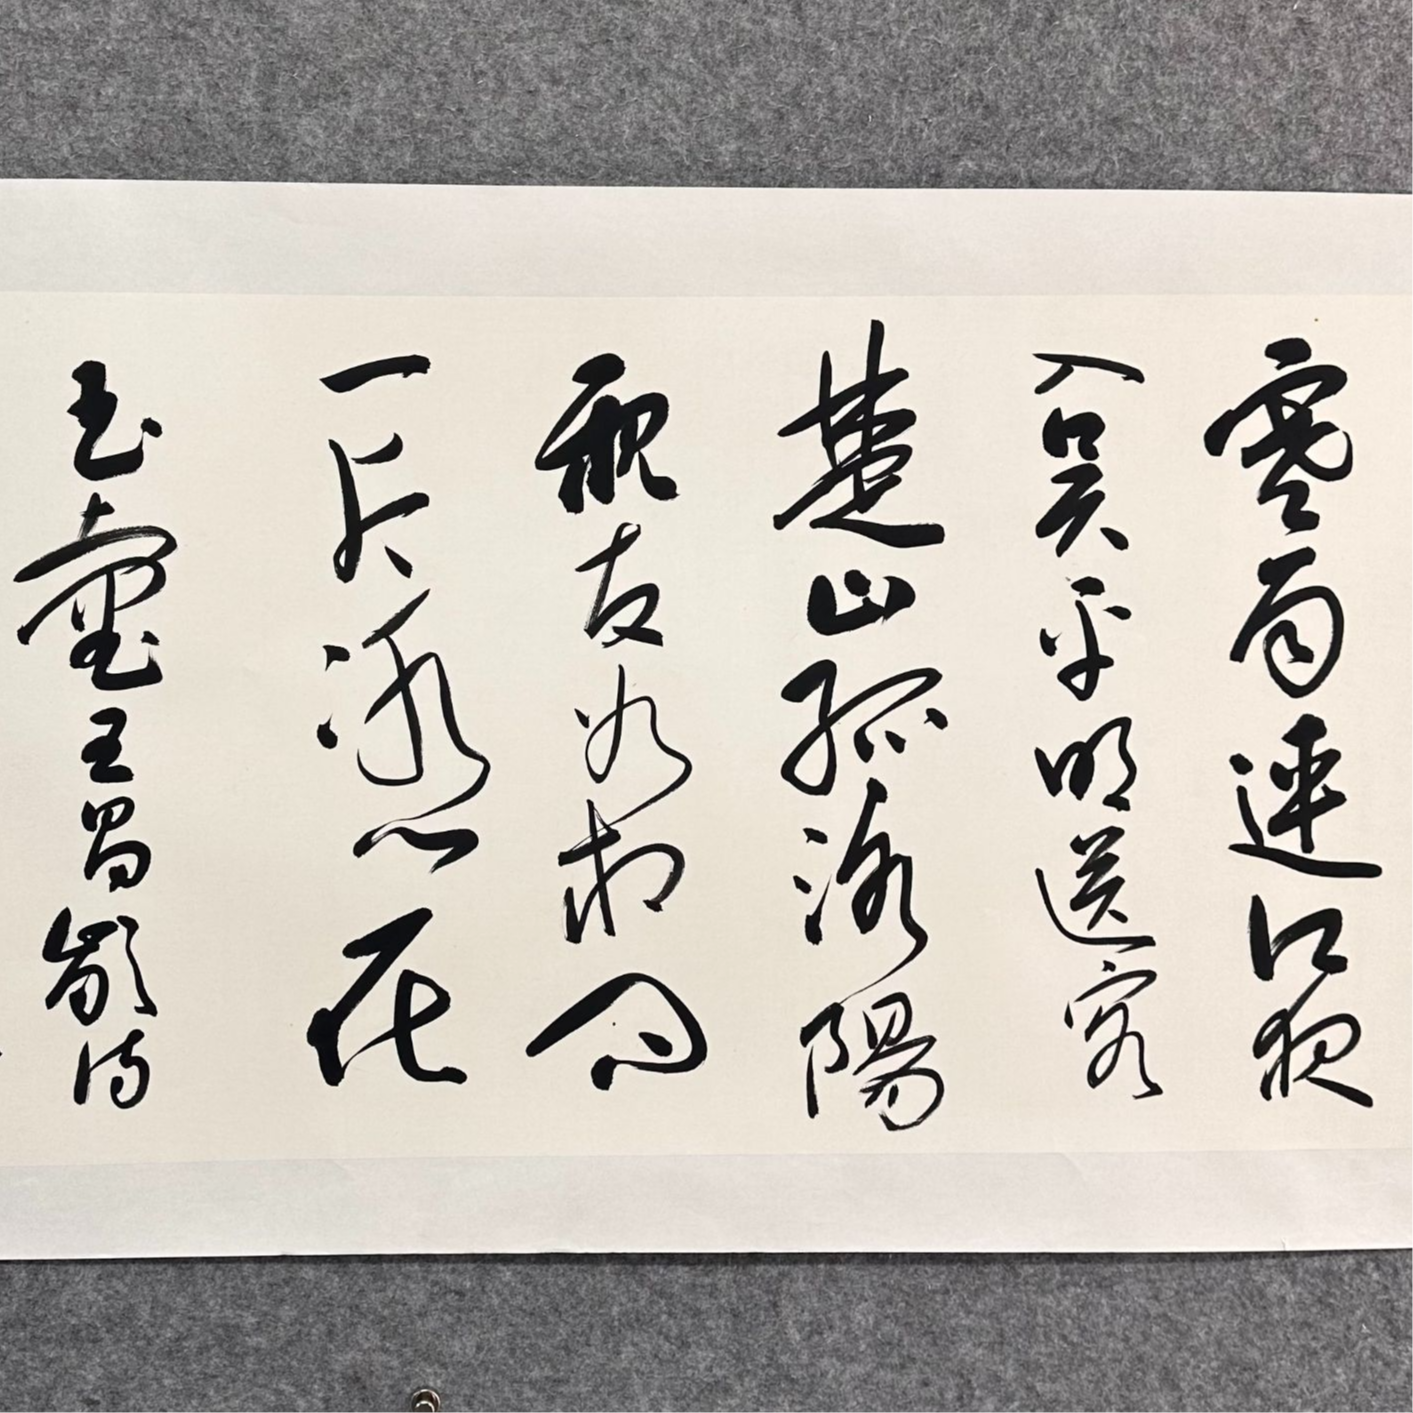 寒雨連江夜
入吳平明送客
楚山孤洛陽
親友如相問
一片冰心在
玉壺王昌齡詩